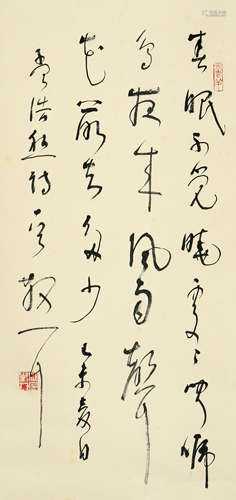 春眠不觉晓处处闻啼
鸟夜来风雨声
花落知多少 乙未夏日
孟浩然诗一首 敬一